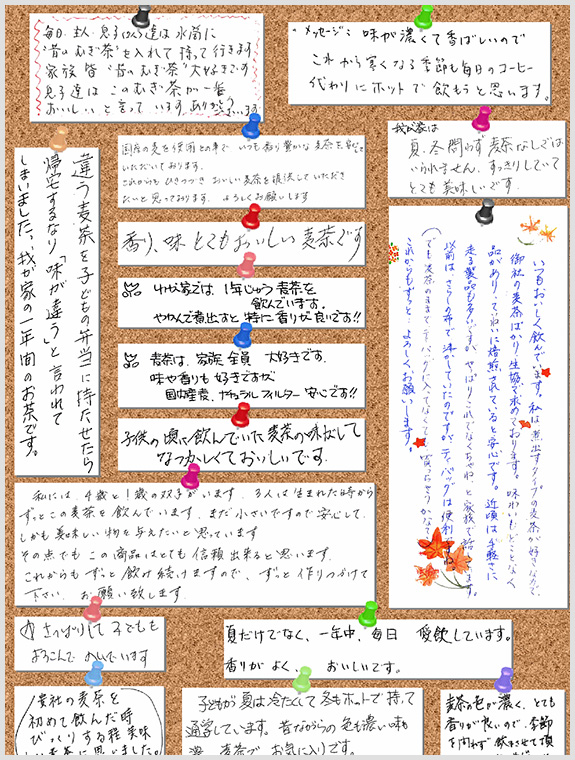 毎日、主人、息子(4人)達は水筒に
"昔のむぎ茶"を入れて持って行きます
家族皆"昔のむぎ茶"大好きです
息子達はこのむぎ茶が一番
おいしいと言っています。ありがとうございます
メッセージ: 味が濃くて香ばしいので
これから寒くなる季節も毎日のコーヒー
代わりにホットで飲もうと思います。
我が家は
夏、冬問わず麦茶なしでは
いられません。すっきりしていて
とても美味しいです。
違う麦茶を子どもの弁当に持たせたら
帰宅するなり「味が違う」と言われて
しまいました。我が家の一年間のお茶です。
国産の麦を使用との事で いつも香り豊かな麦茶を
いただいております。
これからもひきつづき おいしい麦茶を提供していただき
たいと思っております。よろしくお願いします
香り、味 とてもおいしい麦茶です
わが家では、1年じゅう麦茶を
飲んでいます。
やかんで煮出すと特に香りが良いです!!
麦茶は、家族全員 大好きです。
味や香りも好きですが
国内産麦、ナチュラルフィルター 安心です!!
子供の頃に飲んでいた麦茶の味がして
なつかしくておいしいです。
いつもおいしく飲んでいます。私は煮出すタイプの麦茶が好きなので
御社の麦茶ばかり生協で求めております。味わいもどことなく
品があり、ていねいに焙煎されていると安心です。近頃は手軽さに
走る製品も多いですが、やはりこれでなくちゃねと家族で話しています。
以前は、さらしの布で沸かしていたのですが、ティーバッグは便利
これからもずっと、よろしくお願いします。
私には、4歳と1歳の双子がいます。3人は生まれた時から
ずっとこの麦茶を飲んでいます。まだ小さいですので安心して、
しかも美味しい物を与えたいと思っています
その点でも この商品はとても信頼出来ると思います。
これからも ずっと飲み続けますので、ずっと作りつづけて
下さい。お願い致します。
さっぱりして子どもも
よろこんでのんでいます
夏だけでなく、一年中、毎日 愛飲しています。
香りがよく、おいしいです。
貴社の麦茶を
初めて飲んだ時
びっくりする程美味
しい麦茶に思いました。
子どもが夏は冷たくて冬もホットで持って
通学しています。昔ながらの色も濃い味も
麦茶で お気に入りです。
麦茶の色が濃く、とても
香りが良いので、季節
を問わず 飲ませて頂